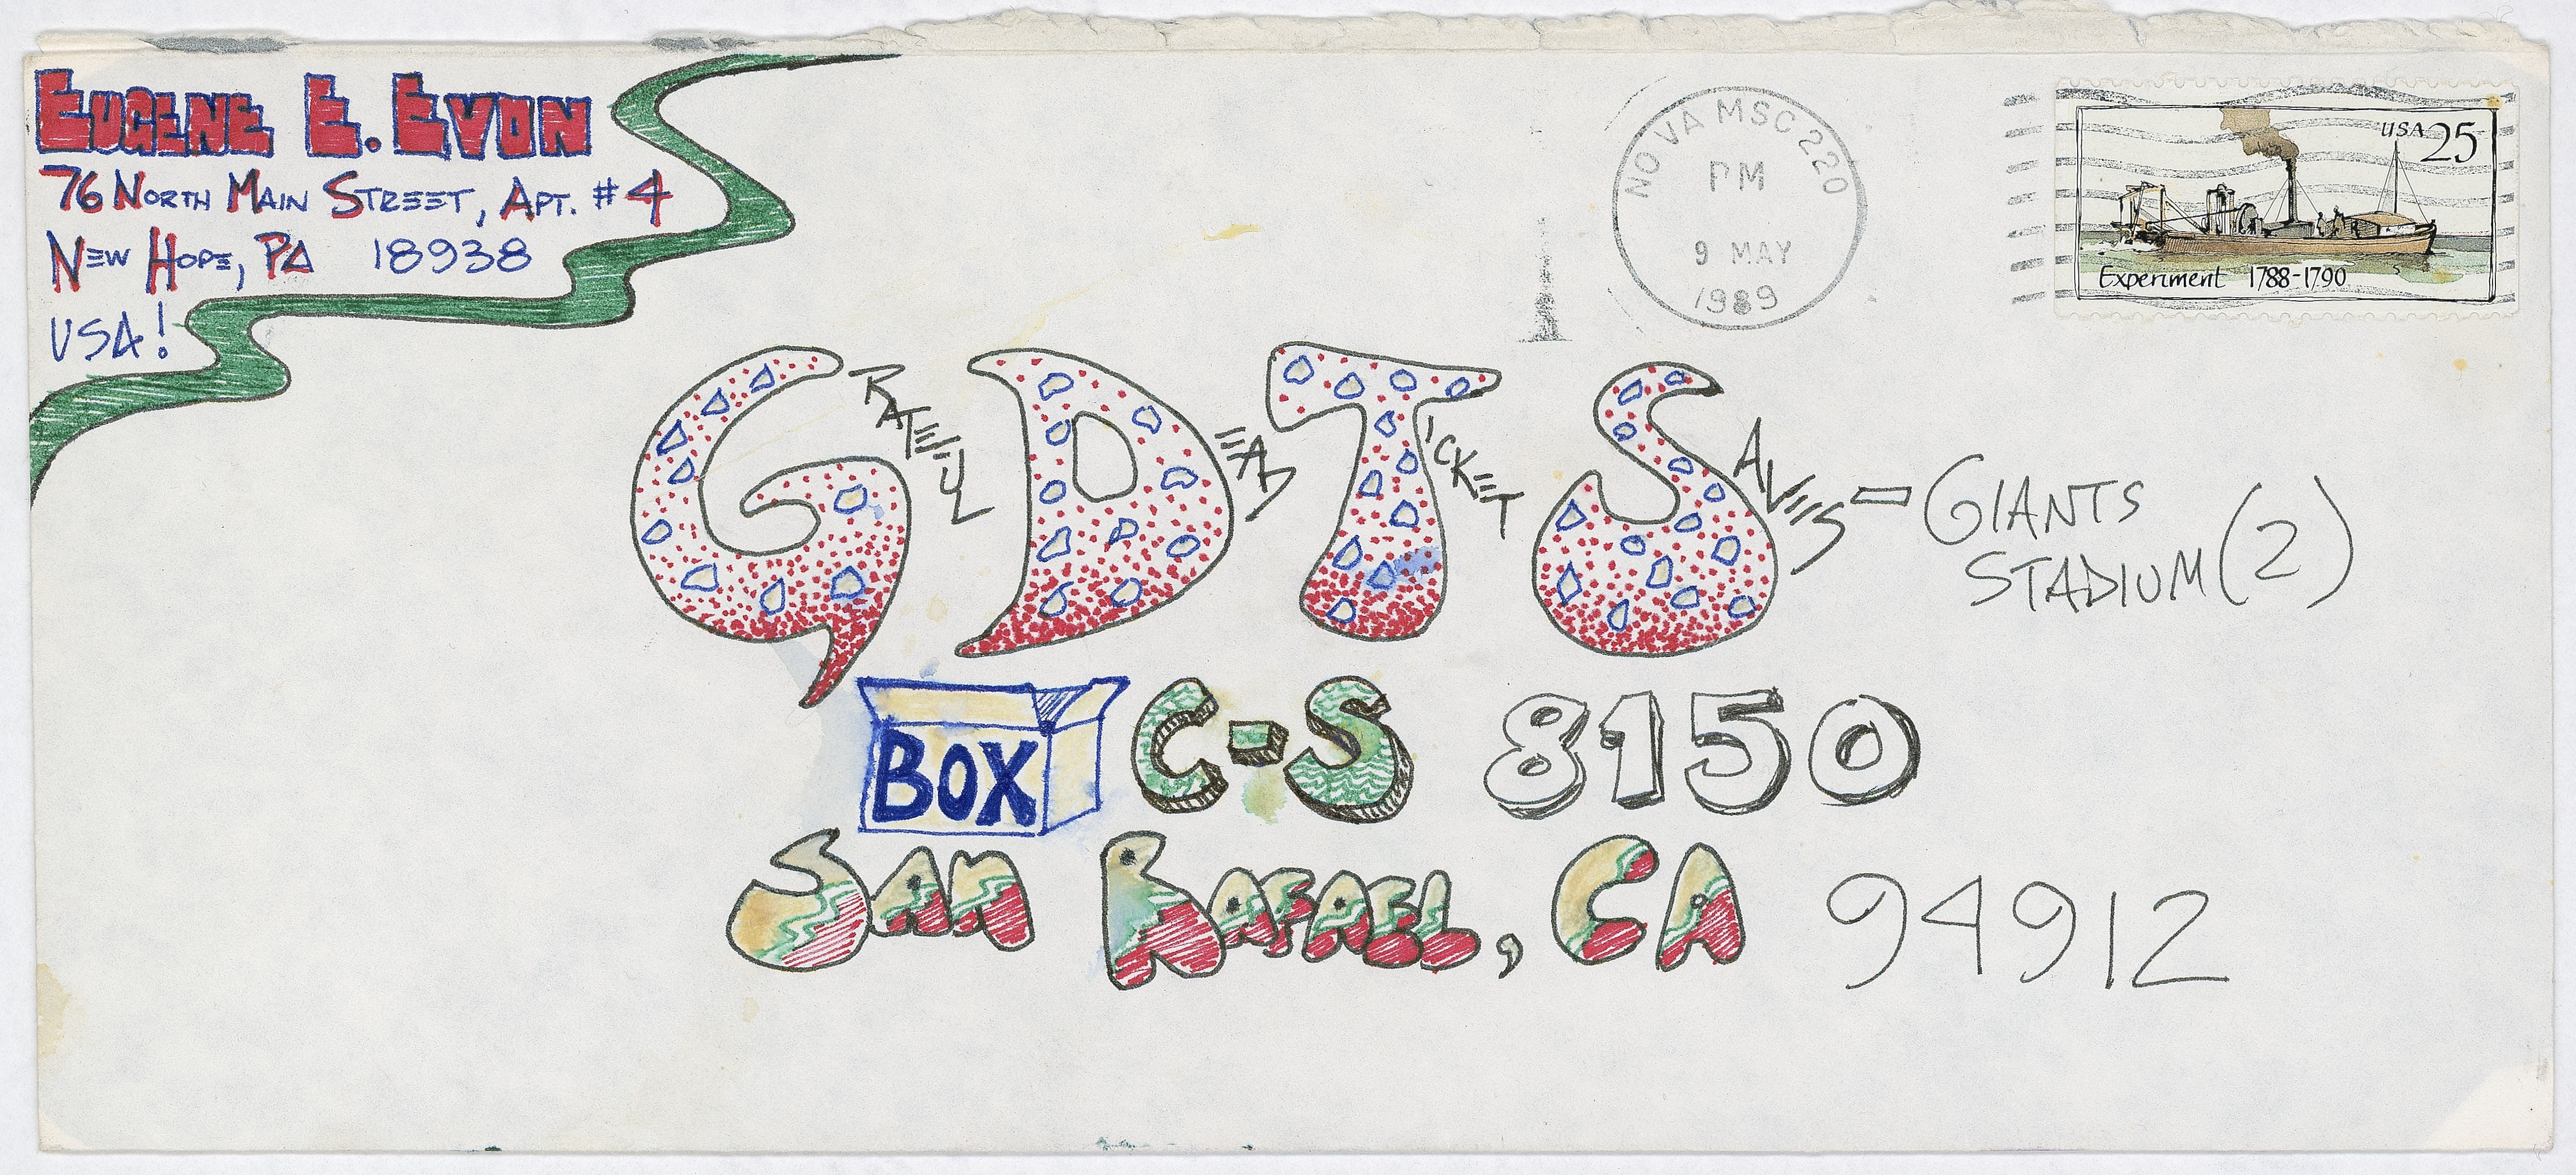 EUGENE E. EVON
76 NORTH MAIN STREET, APT. #4
NEW HOPE, PA 18938
USA!
NO VA MSC 220
PM
9 MAY
1989
USA 25
Experiment 1788-1790
GRATEFUL DEAD TICKET SAVES - GIANTS
STADIUM (2)
BOX C-S 8150
SAN RAFAEL, CA 94912